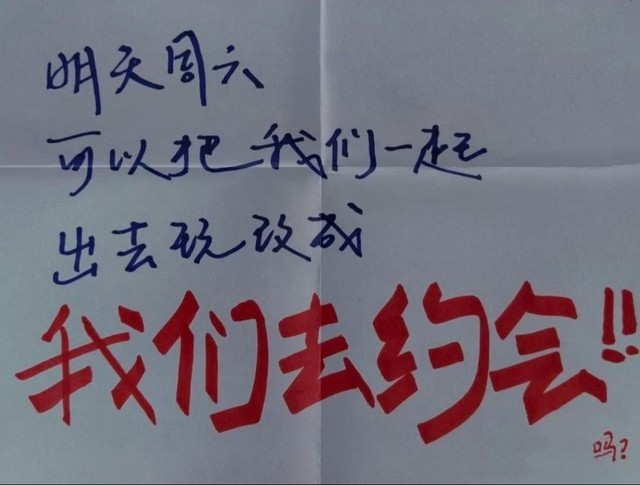 明天周六
可以把我们一起
出去玩改成
我们去约会!!
吗?